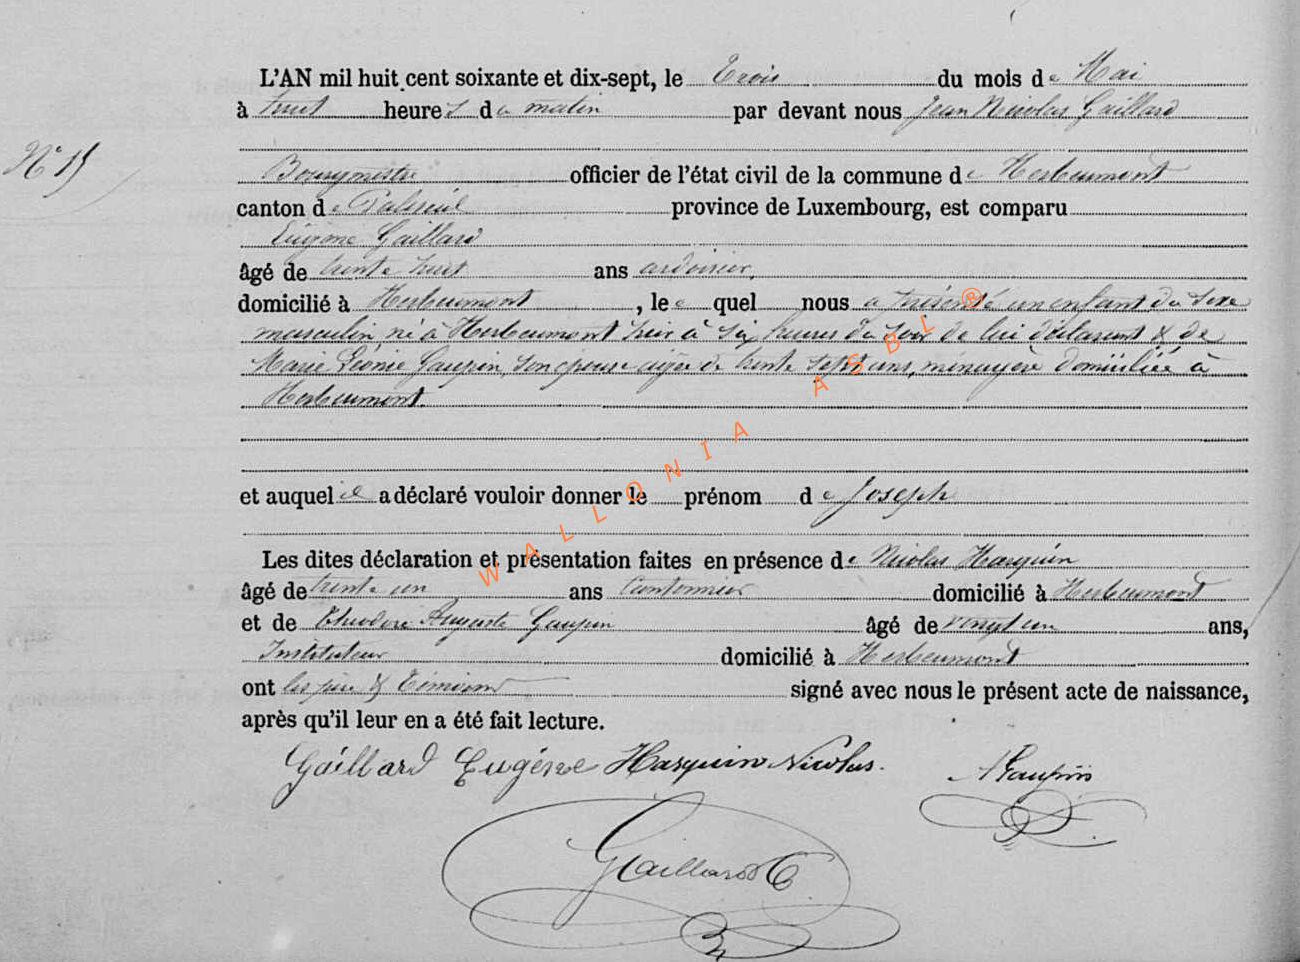 L'AN mil huit cent soixante et dix-sept, le Trois du mois de Mai
à huit heures du matin par devant nous Jean Nicolas Gaillard
N° 15
Bourgmestre officier de l'état civil de la commune de Herbeumont
canton de Paliseul province de Luxembourg, est comparu
Eugène Gaillard
âgé de trente huit ans ardoisier,
domicilié à Herbeumont, lequel nous a présenté un enfant du sexe
masculin, né à Herbeumont hier à six heures du soir de lui déclarant & de
Marie Léonie Gaupin, son épouse âgée de trente sept ans, ménagère domiciliée à
Herbeumont
et auquel il a déclaré vouloir donner le prénom de Joseph
Les dites déclaration et présentation faites en présence de Nicolas Harquin
âgé de trente un ans Cantonnier domicilié à Herbeumont
et de Théodore Auguste Gaupin âgé de vingt un ans,
Instituteur domicilié à Herbeumont
ont les père & témoins signé avec nous le présent acte de naissance,
après qu'il leur en a été fait lecture.
Gaillard Eugène Harquin Nicolas. A Gaupin
Gaillard
WALLONIA ASBL ®